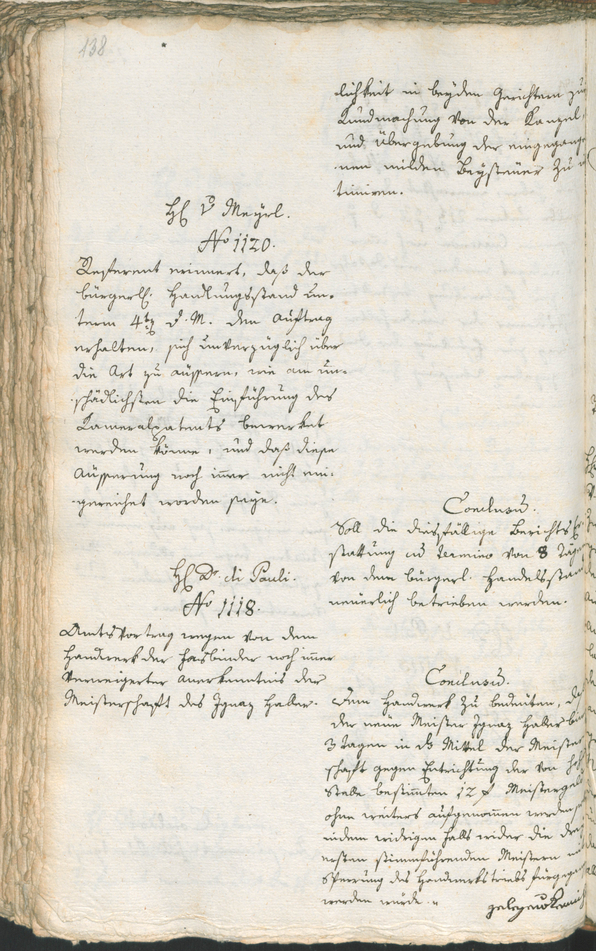 138
lichkeit in beyden Gerichtern zur
Kundmachung von der Kanzel,
und Übergebung der eingegange-
nen milden Beysteuer zu
timiren.
H: v. Meyrl.
No 1120.
Referent erinnert, daß der
bürgerl: Handlungsstand un-
term 4ten d: M. den Auftrag
erhalten, sich unverzüglich über
die Art zu äussern, wie am un-
schädlichsten die Einführung des
Kameralpatents bewerket
werden könne, und daß diese
Äusserung noch immer nicht ein-
gereichet worden seye.
Conclusum.
Soll die diesfällige Berichts Er-
stattung cum termino von 8 Tägen
von dem bürgerl. Handelsstan
neuerlich betrieben werden.
H: Dr. di Pauli.
No 1118.
Amtsvortrag wegen von dem
Handwerk der Fasbinder noch immer
verweigerter Anerkenntnis der
Meisterschaft des Ignaz Haller.
Conclusum.
Dem Handwerk zu bedeuten, daß
der neue Meister Ignaz Haller bin
3 Tagen in das Mittel der Meister
schaft gegen Entrichtung der von
Stelle bestimmten 12 f Meistergeld
ohne weiters aufgenommen werden
indem widrigen Falls wider die drey
ersten stimmführenden Meistern mit
Sperrung des Handwerkstriebs fürgegan
werden würde.